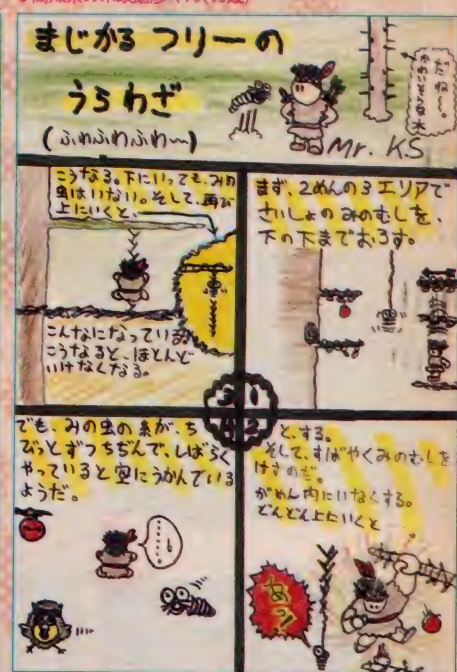 まじかる フリーの
うらわざ
(ふわふわふわ〜)
だね〜。
Mr. KS
まず、2めんの3エリアで
さいしょのみのむしを、
下の下までおろす。
と、する。
そして、すばやくみのむしを
けすのだ。
がめん内にいなくする。
どんどん上にいくと
こうなる。下にいっても、みの
虫はいない。そして、再び
上にいくと、
こんなになっている
こうなると、ほとんど
いけなくなる。
でも、みの虫の糸が、ち
びっとずつちぢんで、しばらく
やっていると空にうかんでいる
ようだ。